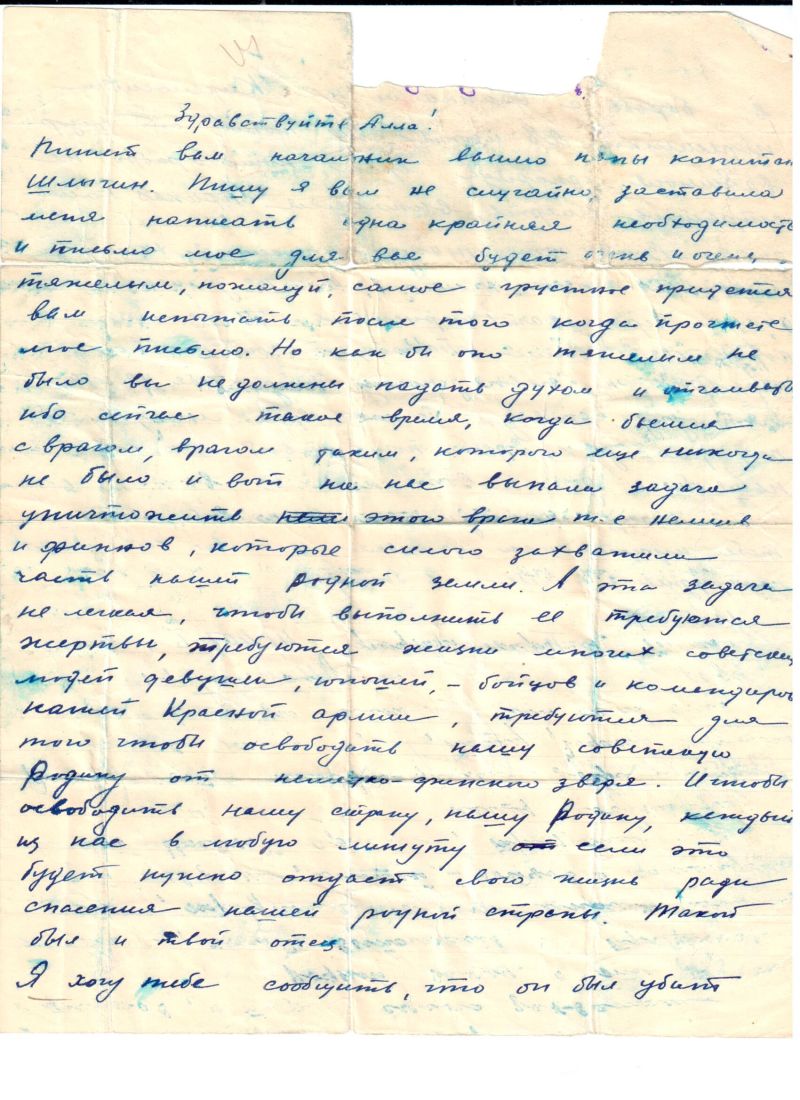 Здравствуйте Алла!
Пишет вам начальник вашего папы капитан
Шлычин. Пишу я вам не случайно, заставила
меня написать одна крайняя необходимость
и письмо мое для вас будет очень и очень
тяжелым, пожалуй, самое грустное придется
вам испытать после того когда прочтете
мое письмо. Но как бы оно тяжелым не
было вы не должны падать духом и отчаиваться
ибо сейчас такое время, когда бьемся
с врагом, врагом таким, которого еще никогда
не было и вот на нас выпала задача
уничтожить этого врага т.е немцев
и финнов, которые силого захватили
часть нашей родной земли. А эта задача
не легкая, чтобы выполнить ее требуются
жертвы, требуются жизни многих советских
людей девушек, юношей, - бойцов и командиров
нашей Красной армии, требуются для
того чтобы освободить нашу советскую
Родину от немецко-финского зверя. И чтобы
освободить нашу страну, нашу Родину, каждый
из нас в любую минуту если это
будет нужно отдаст свою жизнь ради
спасения нашей родной страны. Такой
был и твой отец.
Я хочу тебе сообщить, что он был убит